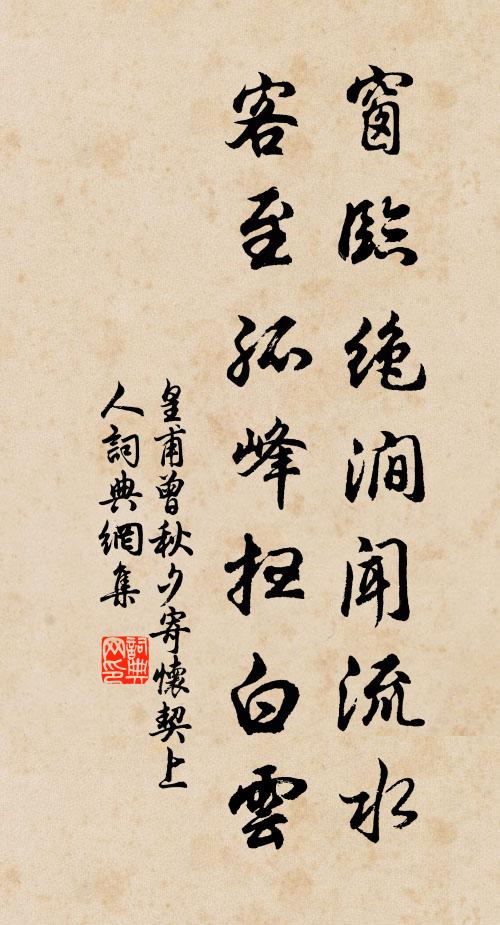 窗臨絶澗聞流水
客至孤峰扫白雲
皇甫曾秋夕寄懷契上
人詞典網集
詞典
网印